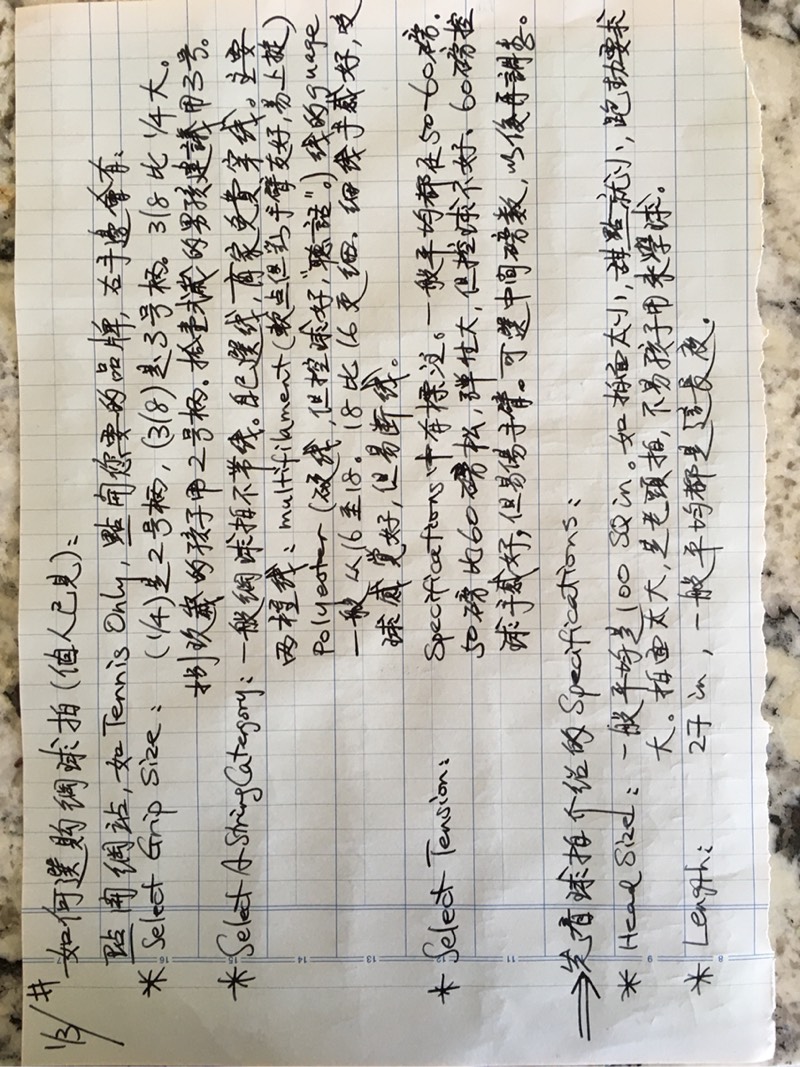 1/3/共
如何選購網球拍(個人己見):
點開網站,如Tennis Only,點開您要的品牌,右手邊會有:
* Select Grip Size: (1/4)是2号柄,(3/8)是3号柄。3/8比1/4大。
捌玖歲的孩子用2号柄.拾壹歲的男孩建議用3号。
* Select A String Category: 一般網球拍不带线。自己選线,商家免費穿线。主要
两種线: multifilament (軟点但對手臂友好,易上旋)
Polyester (硬线,但控球好,"聽話"。) 线的guage
一般从16至18。18比16更细。细线手感好,咬
球感覺好,但易断线。
* Select Tension: Specifications中有標注。一般平均都在50-60磅.
50磅比60磅松,弹性大,但控球不好、60磅控
球手感好,但易傷手臂。可選中间磅数,以後再調整。
⇒先看球拍介绍的Specifications:
* Head Size: 一般平均是100 SQ in。如拍面太小,甜點就小,跑动要求
大。拍面太大,是老頭拍,不易孩子用来學球。
* Length: 27 in,一般平均都是這長度。
7
16
15
14
13
12
11
9
8